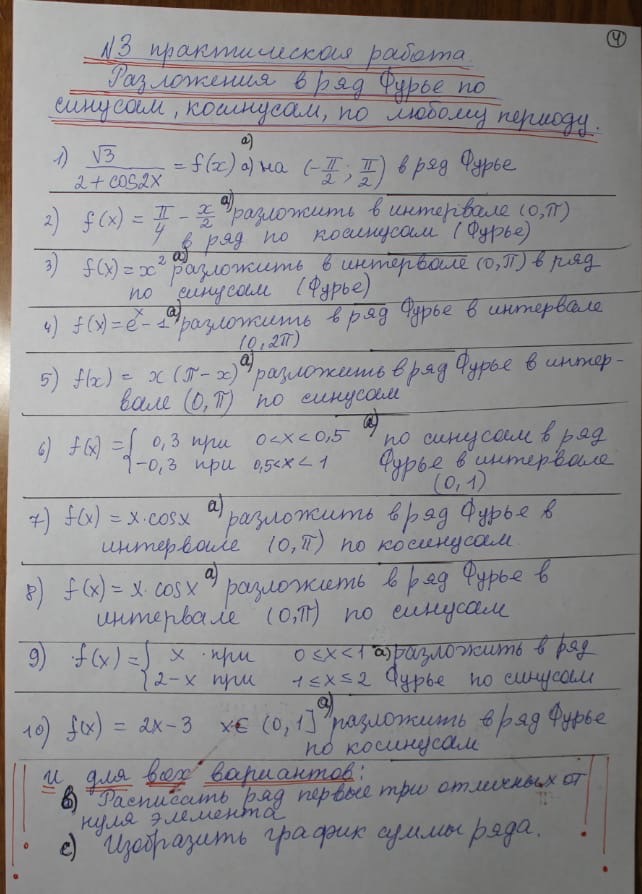 4
N3 практическая работа.
Разложения в ряд Фурье по
синусам, косинусам, по любому периоду.
1) √3 / (2 + cos2x) = f(x) а) на (-π/2 ; π/2) в ряд Фурье
2) f(x) = π/4 - x/2 а) разложить в интервале (0, π)
в ряд по косинусам (Фурье)
3) f(x) = x² а) разложить в интервале (0, π) в ряд
по синусам (Фурье)
4) f(x) = eˣ - 1 а) разложить в ряд Фурье в интервале
(0, 2π)
5) f(x) = x (π - x) а) разложить в ряд Фурье в интер-
вале (0, π) по синусам
6) f(x) = { 0,3 при 0 < x < 0,5 а) по синусам в ряд
-0,3 при 0,5 < x < 1 Фурье в интервале
(0, 1)
7) f(x) = x · cosx а) разложить в ряд Фурье в
интервале (0, π) по косинусам
8) f(x) = x · cosx а) разложить в ряд Фурье в
интервале (0, π) по синусам
9) f(x) = { x при 0 ≤ x < 1 а) разложить в ряд
2 - x при 1 ≤ x ≤ 2 Фурье по синусам
10) f(x) = 2x - 3 x ∈ (0, 1] а) разложить в ряд Фурье
по косинусам
и для всех вариантов:
в) Расписать ряд первые три отличных от
нуля элемента
с) Изобразить график суммы ряда.